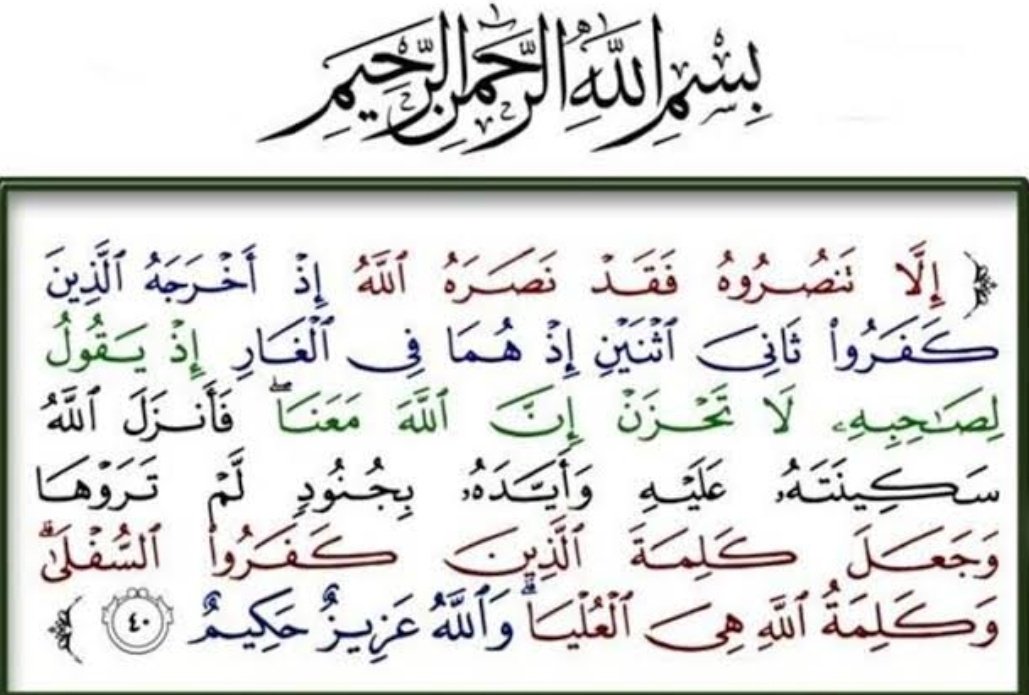 بِسْمِ اللَّهِ الرَّحْمَنِ الرَّحِيمِ
﴿ إِلَّا تَنصُرُوهُ فَقَدْ نَصَرَهُ ٱللَّهُ إِذْ أَخْرَجَهُ ٱلَّذِينَ
كَفَرُوا۟ ثَانِىَ ٱثْنَيْنِ إِذْ هُمَا فِى ٱلْغَارِ إِذْ يَقُولُ
لِصَـٰحِبِهِۦ لَا تَحْزَنْ إِنَّ ٱللَّهَ مَعَنَا ۖ فَأَنزَلَ ٱللَّهُ
سَكِينَتَهُۥ عَلَيْهِ وَأَيَّدَهُۥ بِجُنُودٍ لَّمْ تَرَوْهَا
وَجَعَلَ كَلِمَةَ ٱلَّذِينَ كَفَرُوا۟ ٱلسُّفْلَىٰ ۗ
وَكَلِمَةُ ٱللَّهِ هِىَ ٱلْعُلْيَا ۗ وَٱللَّهُ عَزِيزٌ حَكِيمٌ ٤٠ ﴾